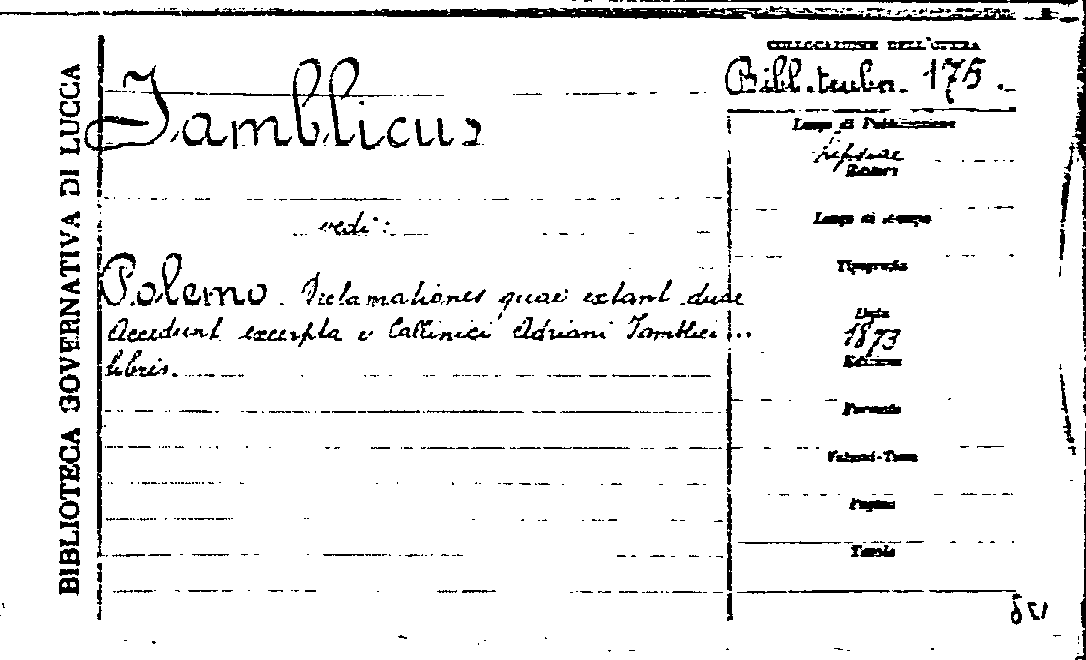 BIBLIOTECA GOVERNATIVA DI LUCCA
COLLOCAZIONE DELL'OPERA
Bibl. teubn. 175.
Jamblicus
Luogo di Pubblicazione
Lipsiae
vedi:
Luogo di stampa
Tipografia
Polemo. Declamationes quae extant duae
Accedunt excerpta e Callinici Adriani Jamblici...
libris.
Data
1873
Edizione
Formato
Volumi-Tomi
Pagine
Tavole